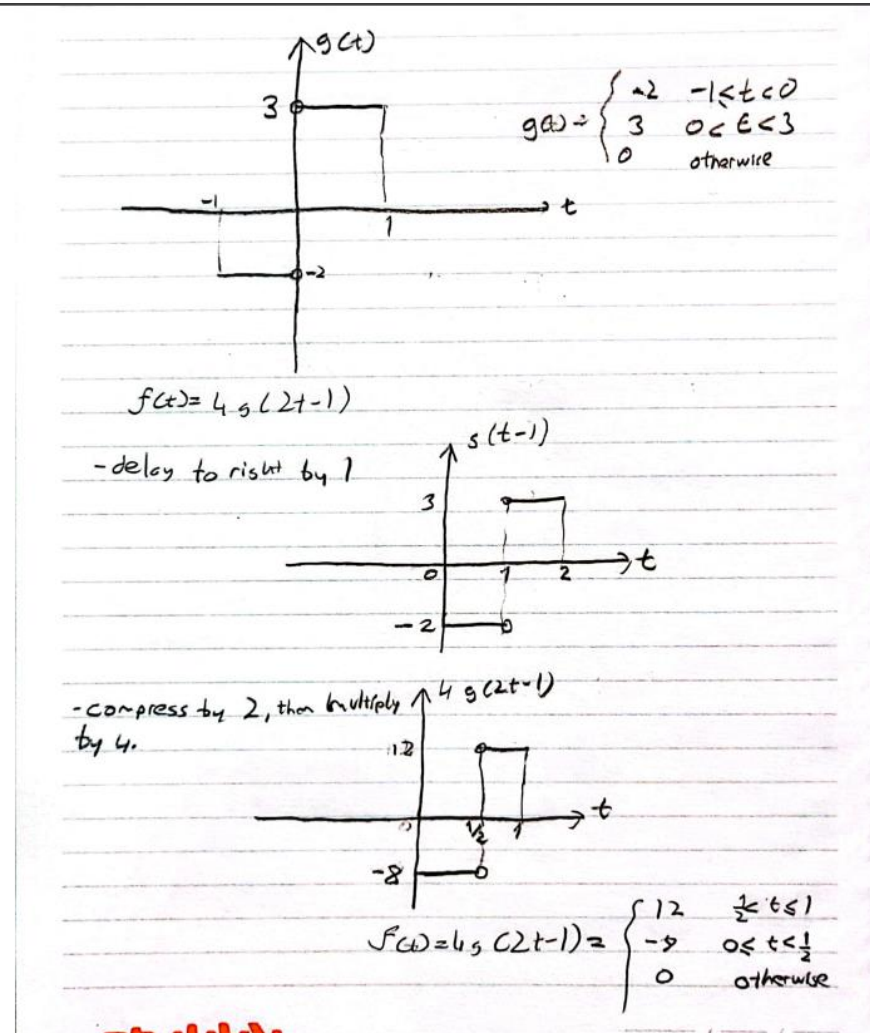 g(t)
3
-1
t
1
-2
g(t) = { -2 -1<t<0
3 0<t<3
0 otherwise
f(t)= 4g(2t-1)
-delay to right by 1
g(t-1)
3
0 1 2 t
-2
-compress by 2, then multiply
by 4.
4 g(2t-1)
12
0 1/2 1 t
-8
f(t)=4g(2t-1)= { 12 1/2< t≤1
0≤ t<1/2
0 otherwise